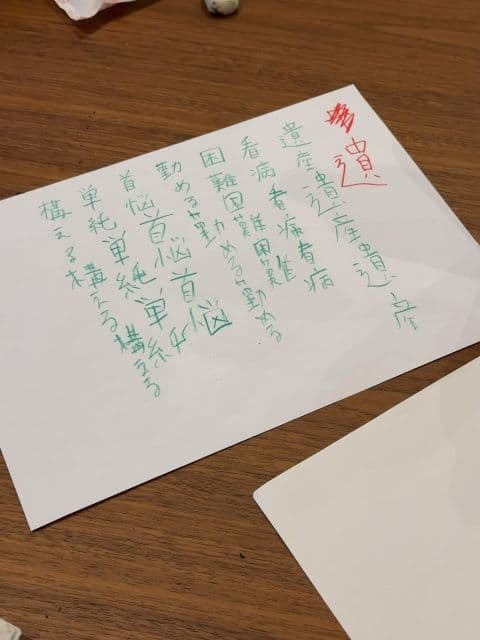 遺
遺産遺産遺産
看病看病看病
困難困難困難
勤める勤める勤める
首悩首悩首悩
単純単純単純
構える構える構える